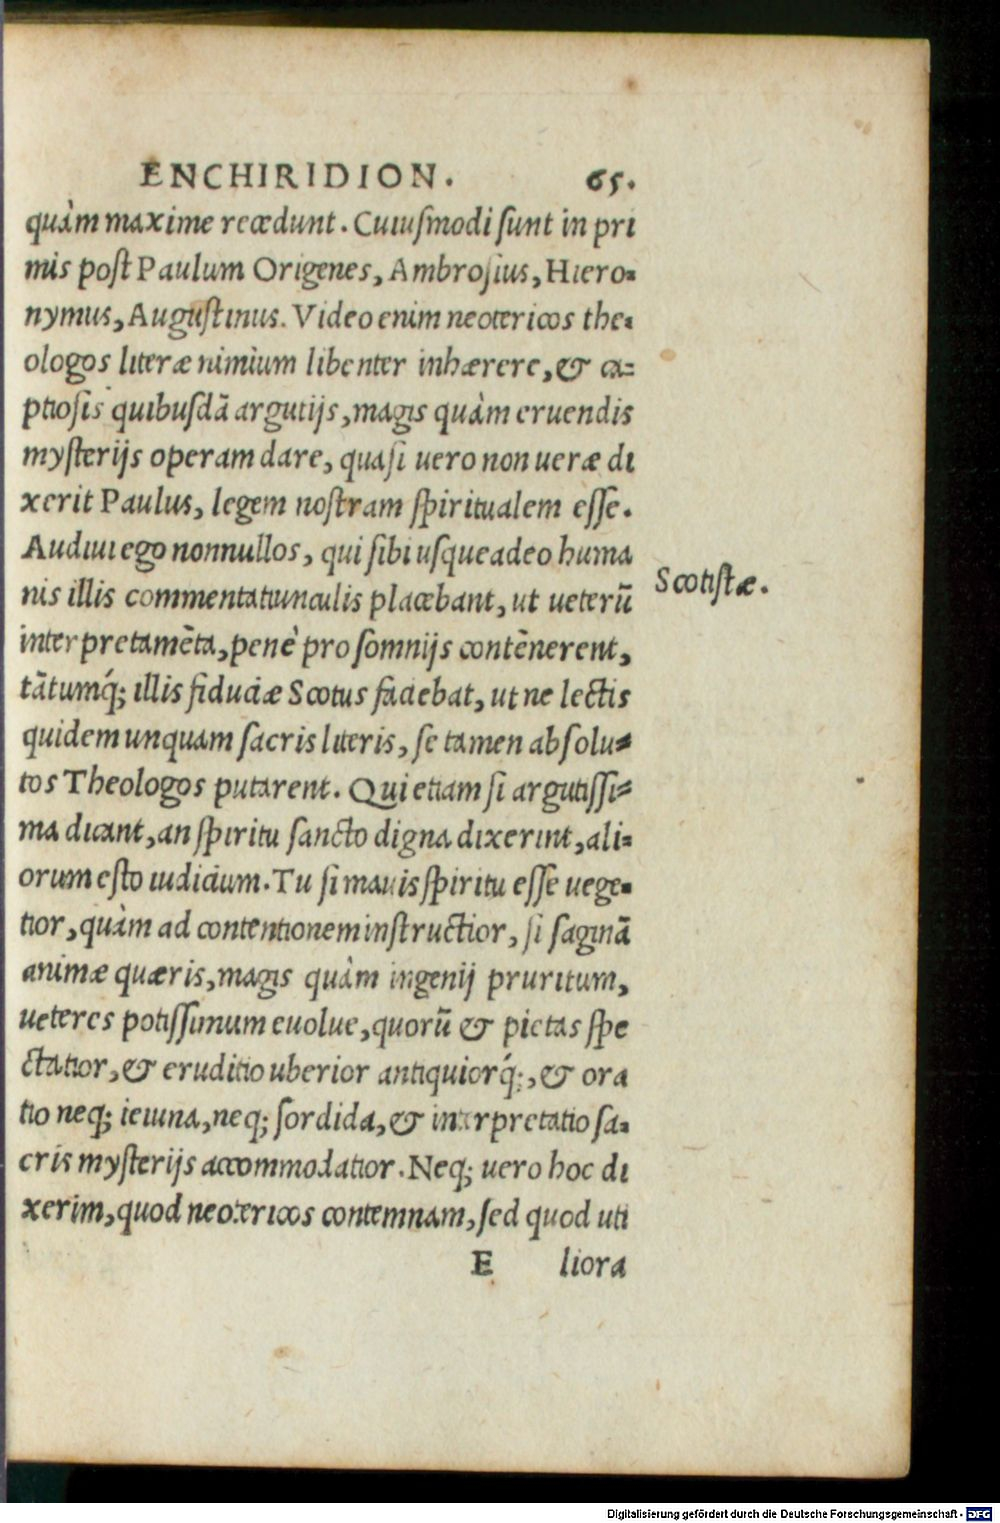 ENCHIRIDION. 65.
quàm maxime recedunt. Cuiusmodi sunt in pri
mis post Paulum Origenes, Ambrosius, Hiero-
nymus, Augustinus. Video enim neotericos the-
ologos literæ nimium libenter inhærere, & ca-
ptiosis quibusdã argutijs, magis quàm eruendis
mysterijs operam dare, quasi uero non ueræ di
xerit Paulus, legem nostram spiritualem esse.
Audiui ego nonnullos, qui sibi usque adeo huma
nis illis commentatiunculis placebant, ut ueterũ
interpretamẽta, penè pro somnijs contẽnerent,
tãtumq́; illis fiduciæ Scotus faciebat, ut ne lectis
quidem unquam sacris literis, se tamen absolu-
tos Theologos putarent. Qui etiam si argutissi-
ma dicant, an spiritu sancto digna dixerint, ali-
orum esto iudicium. Tu si mauis spiritu esse uege-
tior, quàm ad contentionem instructior, si saginã
animæ quæris, magis quàm ingenij pruritum,
ueteres potissimum euolue, quorũ & pietas spe
ctatior, & eruditio uberior antiquiorq́;, & ora
tio neq; ieiuna, neq; sordida, & interpretatio sa-
cris mysterijs accommodatior. Neq; uero hoc di
xerim, quod neotericos contemnam, sed quod uti
E liora
Scotistæ.
Digitalisierung gefördert durch die Deutsche Forschungsgemeinschaft - DFG